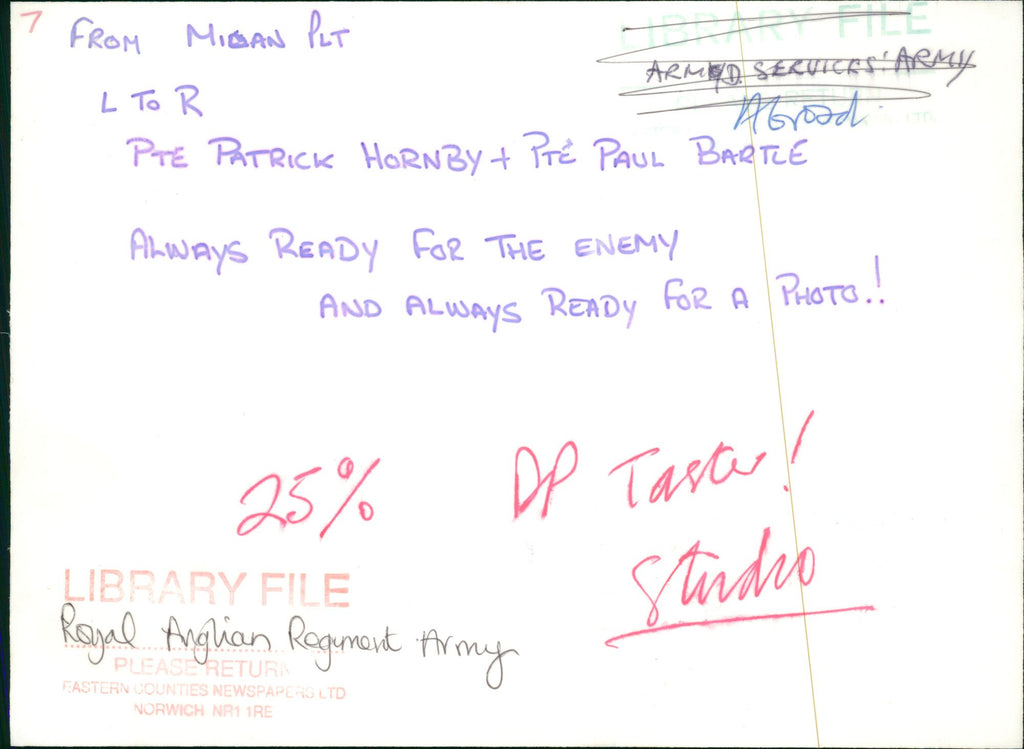 7
FROM MILAN PLT
LIBRARY FILE
ARMED SERVICES: ARMY
Abroad
L TO R
PTE PATRICK HORNBY + PTE PAUL BARTLE
ALWAYS READY FOR THE ENEMY
AND ALWAYS READY FOR A PHOTO!!
25% DP Taster!
Studio
LIBRARY FILE
Royal Anglian Regiment Army
PLEASE RETURN
EASTERN COUNTIES NEWSPAPERS LTD
NORWICH NR1 1RE